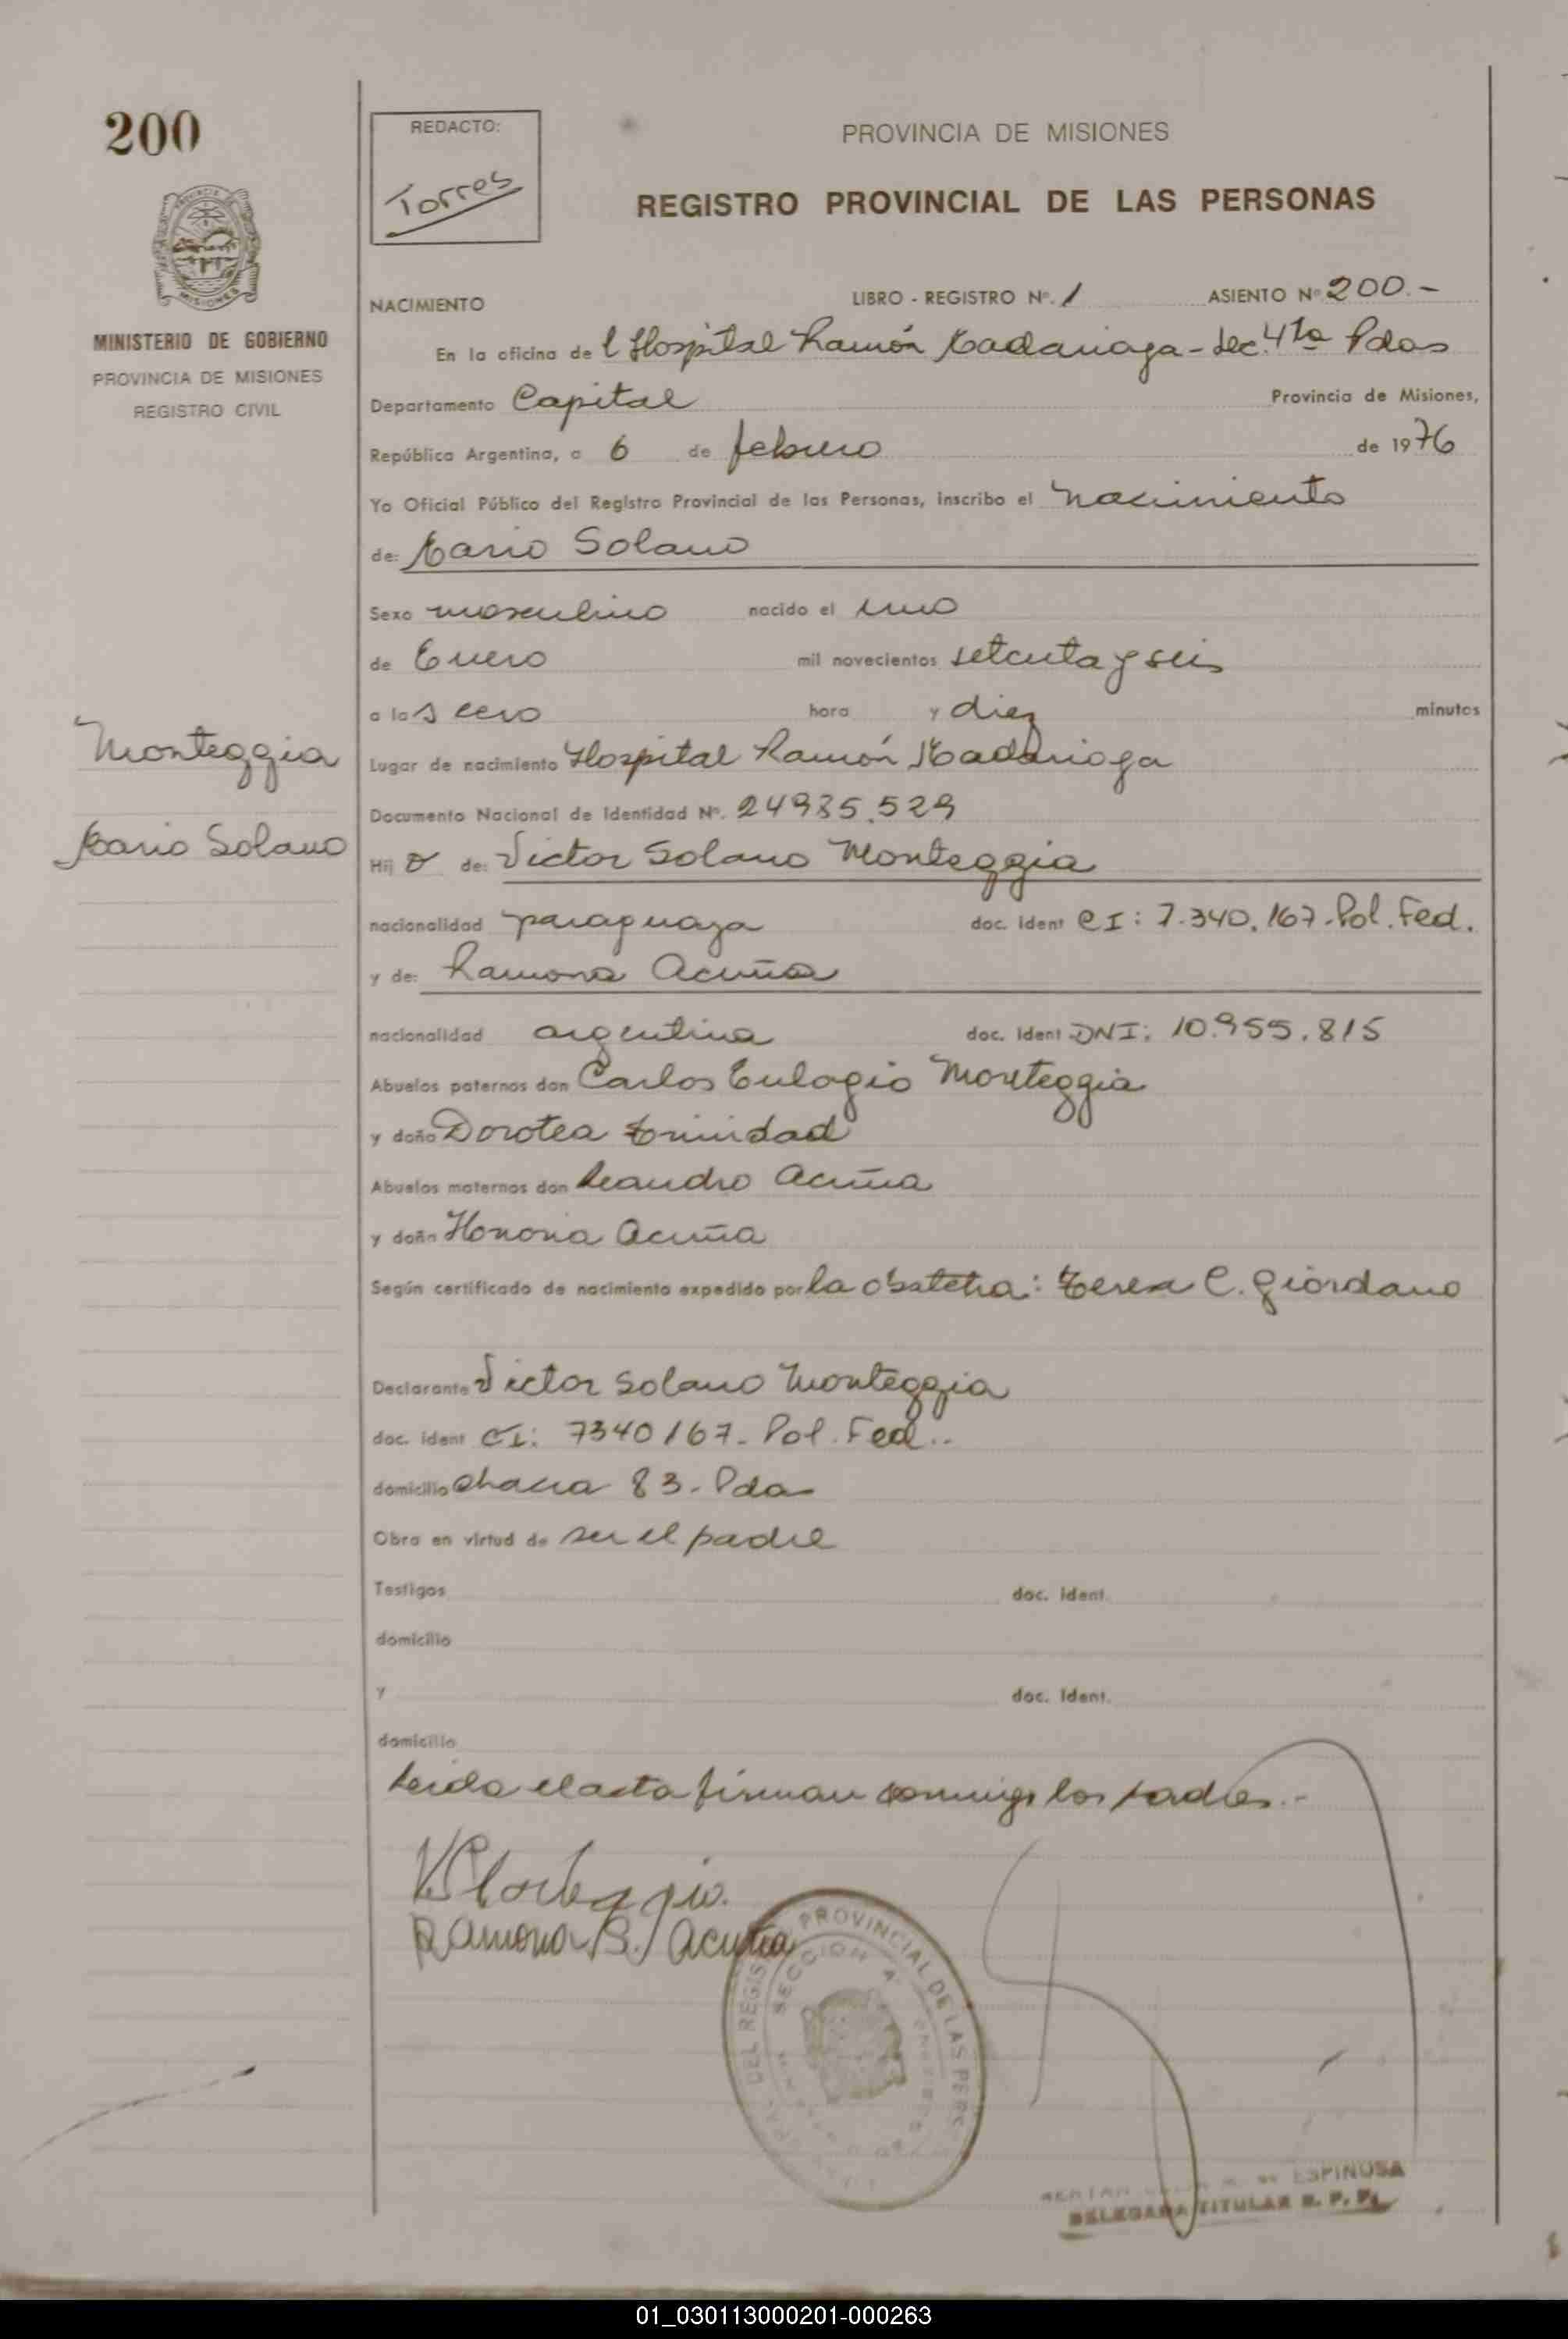 200
REDACTO:
Torres
PROVINCIA DE MISIONES
REGISTRO PROVINCIAL DE LAS PERSONAS
MINISTERIO DE GOBIERNO
PROVINCIA DE MISIONES
REGISTRO CIVIL
NACIMIENTO LIBRO - REGISTRO Nº. 1 ASIENTO Nº 200.-
En la oficina de l Hospital Ramón Madariaga - Sec. 4ta Pdas
Departamento Capital Provincia de Misiones,
República Argentina, a 6 de febrero de 1976
Yo Oficial Público del Registro Provincial de las Personas, inscribo el nacimiento
de: Mario Solano
Sexo masculino nacido el uno
de Enero mil novecientos setenta y seis
a las cero hora y diez minutos
Monteggia
Mario Solano
Lugar de nacimiento Hospital Ramón Madariaga
Documento Nacional de Identidad Nº. 24935.529
Hij o de: Victor Solano Monteggia
nacionalidad paraguaya doc. Ident CI: 7.340.167-Pol.Fed.
y de: Ramona Acuña
nacionalidad argentina doc. Ident DNI: 10.955.815
Abuelos paternos don Carlos Eulogio Monteggia
y doña Dorotea Trinidad
Abuelos maternos don Leandro Acuña
y doña Honoria Acuña
Según certificado de nacimiento expedido por la obstetra: Teresa C. Giordano
Declarante Victor Solano Monteggia
doc. ident CI: 7340167- Pol. Fed..
domicilio chacra 83- Pdas
Obra en virtud de ser el padre
Testigos doc. Ident.
domicilio
y doc. Ident.
domicilio
Leida el acta firman conmigo los padres.-
Ramona B. Acuña
PROVINCIAL DE LAS PERS
DEL REGIS
SECCION
ESPINOSA
DELEGADA TITULAR R. P. P.
01_030113000201-000263